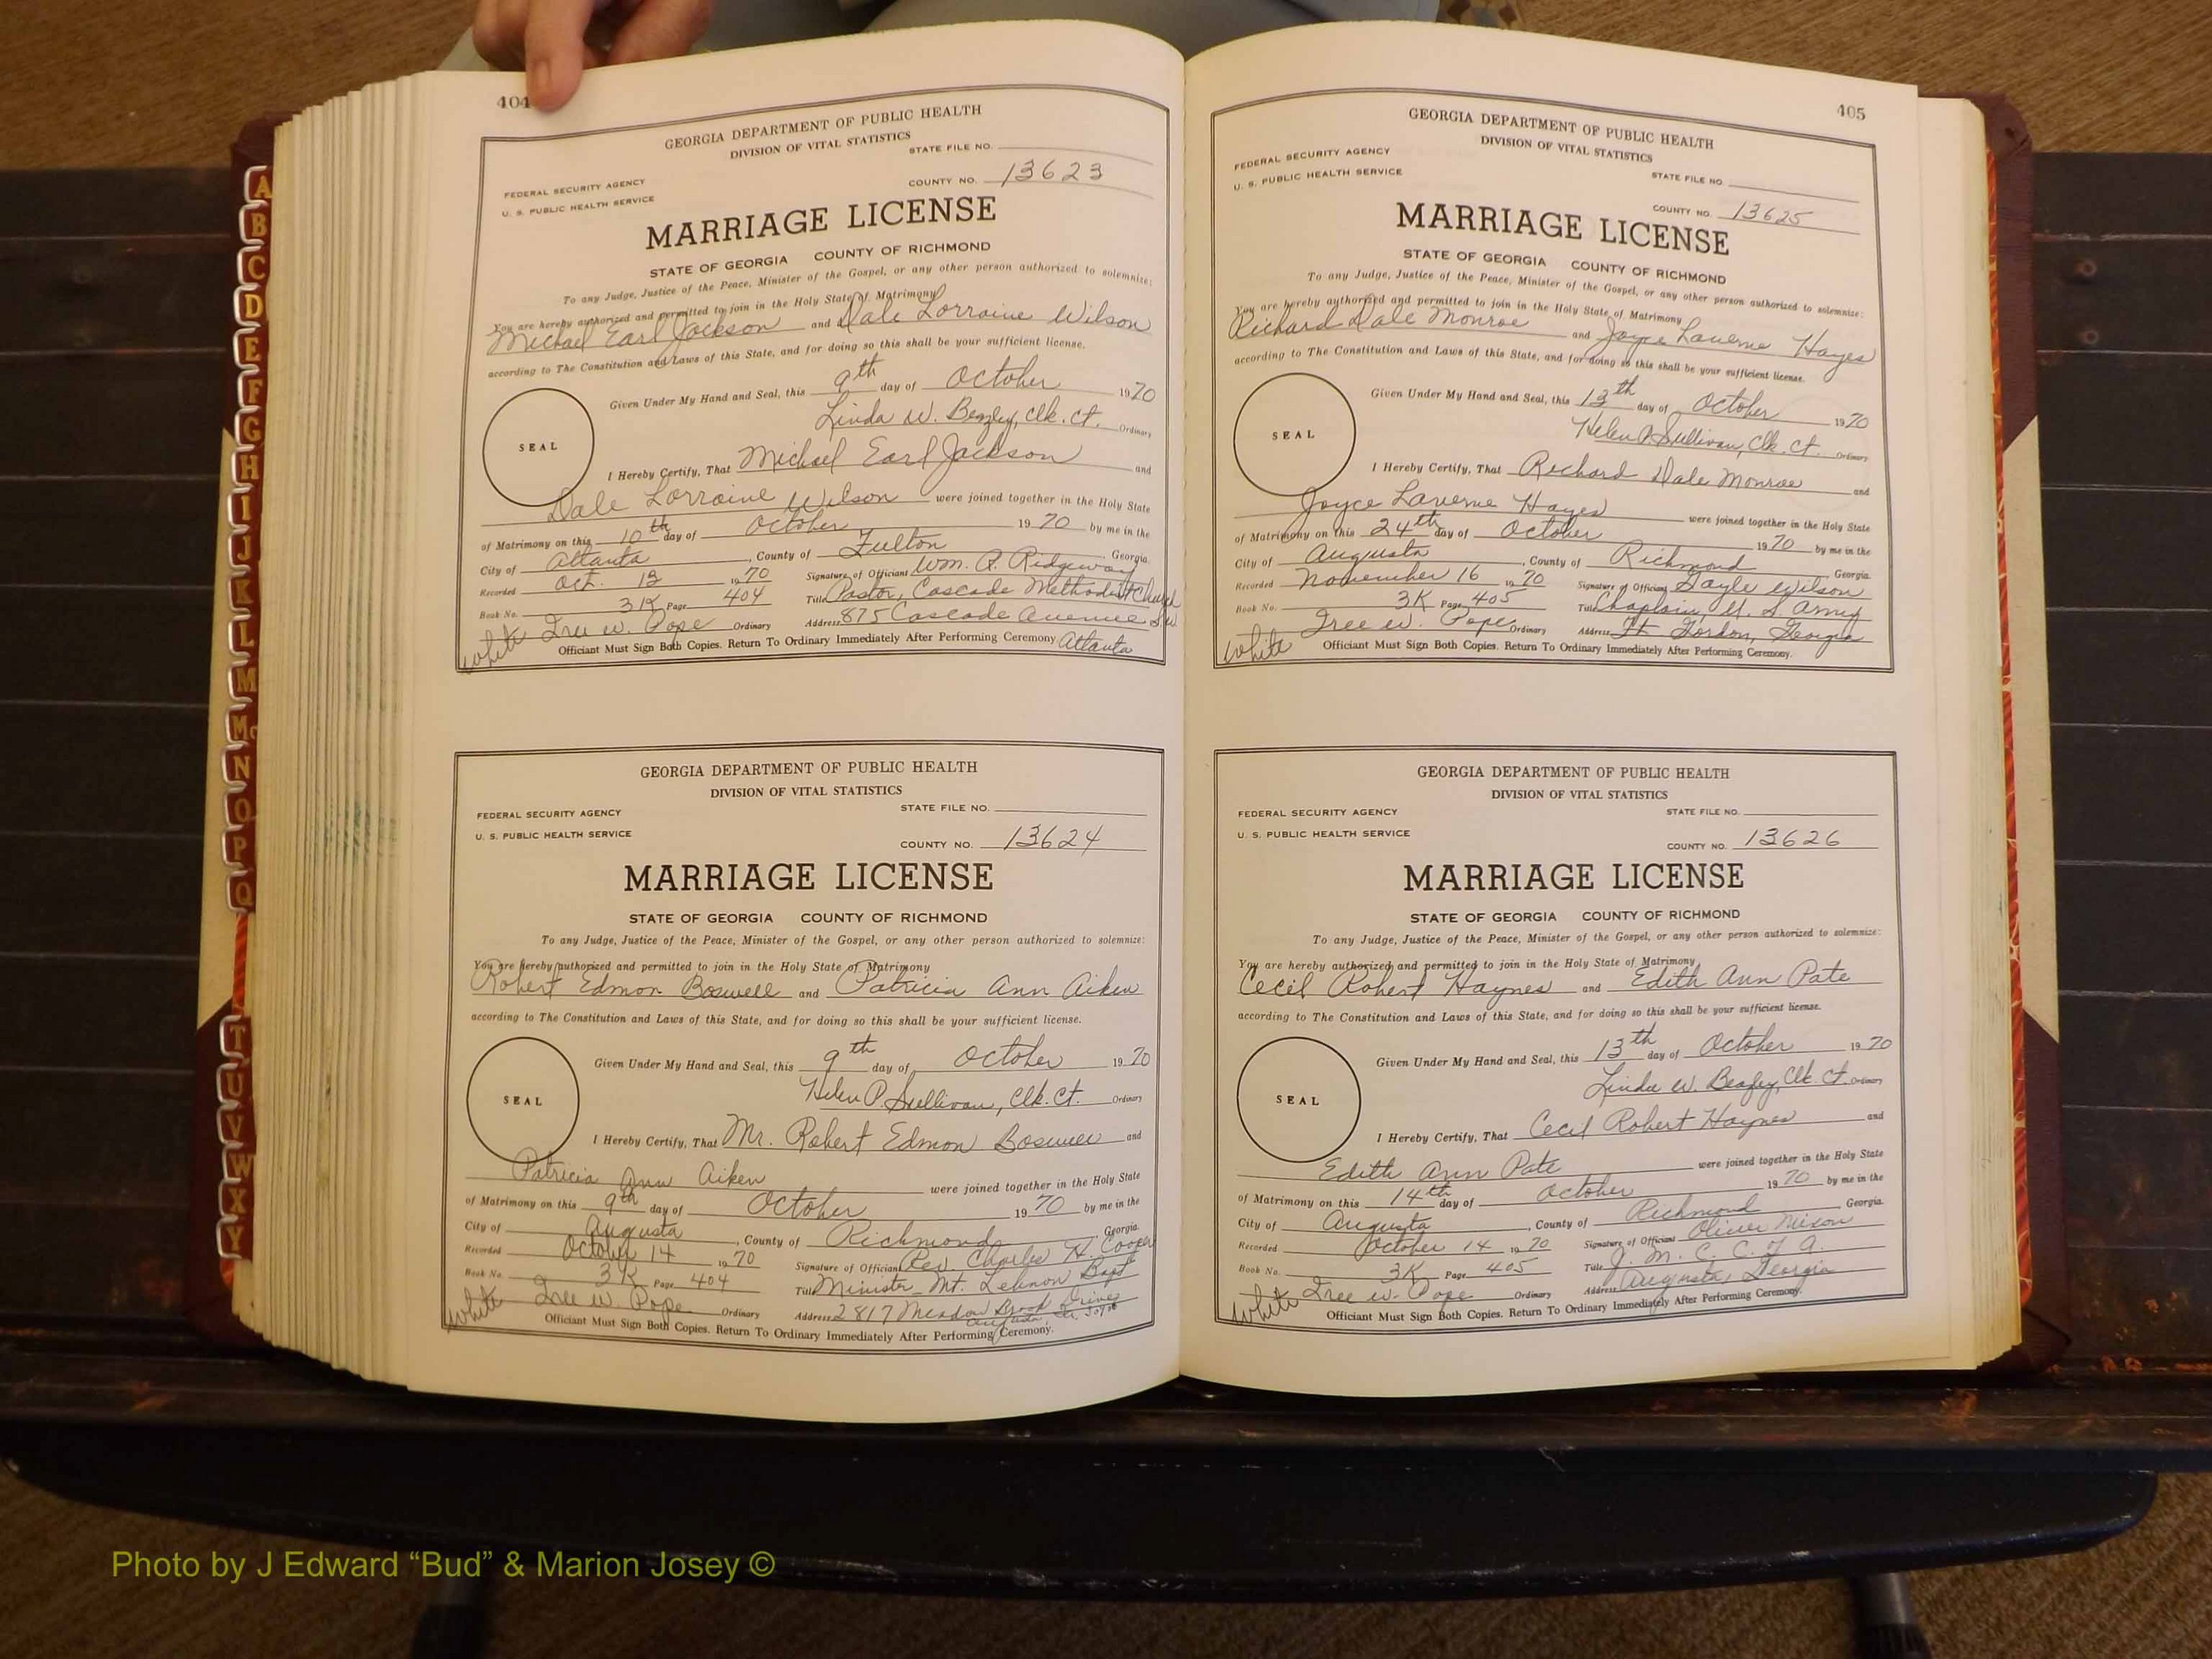 404
GEORGIA DEPARTMENT OF PUBLIC HEALTH
DIVISION OF VITAL STATISTICS
STATE FILE NO.
FEDERAL SECURITY AGENCY
U. S. PUBLIC HEALTH SERVICE
COUNTY NO. 13623
MARRIAGE LICENSE
STATE OF GEORGIA COUNTY OF RICHMOND
To any Judge, Justice of the Peace, Minister of the Gospel, or any other person authorized to solemnize:
You are hereby authorized and permitted to join in the Holy State of Matrimony
Michael Earl Jackson and Dale Lorraine Wilson
according to The Constitution and Laws of this State, and for doing so this shall be your sufficient license.
Given Under My Hand and Seal, this 9th day of October 1970
Linda W. Clk. Ct. Ordinary
SEAL
I Hereby Certify, That Michael Earl Jackson and
Dale Lorraine Wilson were joined together in the Holy State
of Matrimony on this 10th day of October 1970 by me in the
City of Atlanta, County of Fulton, Georgia.
Recorded Oct. 13 1970 Signature of Officiant Wm. A. Ridgeway
Book No. 3K Page 404 Title Pastor, Cascade Methodist Church
White Tree W. Pope Ordinary Address 875 Cascade Avenue S.W.
Officiant Must Sign Both Copies. Return To Ordinary Immediately After Performing Ceremony. Atlanta
GEORGIA DEPARTMENT OF PUBLIC HEALTH
DIVISION OF VITAL STATISTICS
FEDERAL SECURITY AGENCY STATE FILE NO.
U. S. PUBLIC HEALTH SERVICE
COUNTY NO. 13624
MARRIAGE LICENSE
STATE OF GEORGIA COUNTY OF RICHMOND
To any Judge, Justice of the Peace, Minister of the Gospel, or any other person authorized to solemnize:
You are hereby authorized and permitted to join in the Holy State of Matrimony
Robert Edmon Boswell and Patricia Ann Aiken
according to The Constitution and Laws of this State, and for doing so this shall be your sufficient license.
Given Under My Hand and Seal, this 9th day of October 1970
Helen P. Sullivan, Clk. Ct. Ordinary
SEAL
I Hereby Certify, That Mr. Robert Edmon Boswell and
Patricia Ann Aiken were joined together in the Holy State
of Matrimony on this 9th day of October 1970 by me in the
City of Augusta, County of Richmond, Georgia.
Recorded October 14 1970 Signature of Officiant Rev. Charles H. Cooper
Book No. 3K Page 404 Title Minister Mt. Lebnon Bapt
White Tree W. Pope Ordinary Address 2817 Meadow Brook Drive
Augusta, Ga.
Officiant Must Sign Both Copies. Return To Ordinary Immediately After Performing Ceremony.
405
GEORGIA DEPARTMENT OF PUBLIC HEALTH
DIVISION OF VITAL STATISTICS
FEDERAL SECURITY AGENCY
U. S. PUBLIC HEALTH SERVICE
STATE FILE NO.
COUNTY NO. 13625
MARRIAGE LICENSE
STATE OF GEORGIA COUNTY OF RICHMOND
To any Judge, Justice of the Peace, Minister of the Gospel, or any other person authorized to solemnize:
You are hereby authorized and permitted to join in the Holy State of Matrimony
Richard Dale Monroe and Joyce Laverne Hayes
according to The Constitution and Laws of this State, and for doing so this shall be your sufficient license.
Given Under My Hand and Seal, this 13th day of October 1970
Helen P. Sullivan, Clk. Ct. Ordinary
SEAL
I Hereby Certify, That Richard Dale Monroe and
Joyce Laverne Hayes were joined together in the Holy State
of Matrimony on this 24th day of October 1970 by me in the
City of Augusta, County of Richmond, Georgia.
Recorded November 16 1970 Signature of Officiant Gayle Wilson
Book No. 3K Page 405 Title Chaplain, U. S. Army
White Tree W. Pope Ordinary Address Ft. Gordon, Georgia
Officiant Must Sign Both Copies. Return To Ordinary Immediately After Performing Ceremony.
GEORGIA DEPARTMENT OF PUBLIC HEALTH
DIVISION OF VITAL STATISTICS
FEDERAL SECURITY AGENCY STATE FILE NO.
U. S. PUBLIC HEALTH SERVICE
COUNTY NO. 13626
MARRIAGE LICENSE
STATE OF GEORGIA COUNTY OF RICHMOND
To any Judge, Justice of the Peace, Minister of the Gospel, or any other person authorized to solemnize:
You are hereby authorized and permitted to join in the Holy State of Matrimony
Cecil Robert Haynes and Edith Ann Pate
according to The Constitution and Laws of this State, and for doing so this shall be your sufficient license.
Given Under My Hand and Seal, this 13th day of October 1970
Linda W. Clk. Ct. Ordinary
SEAL
I Hereby Certify, That Cecil Robert Haynes and
Edith Ann Pate were joined together in the Holy State
of Matrimony on this 14th day of October 1970 by me in the
City of Augusta, County of Richmond, Georgia.
Recorded October 14 1970 Signature of Officiant Oliver Mixon
Book No. 3K Page 405 Title J. M. C. C. of A.
White Tree W. Pope Ordinary Address Augusta, Georgia
Officiant Must Sign Both Copies. Return To Ordinary Immediately After Performing Ceremony.
A
B
C
D
E
F
G
H
I
J
K
L
M
Mc
N
O
P
Q
T
U
V
W
X
Y
Photo by J Edward “Bud” & Marion Josey ©